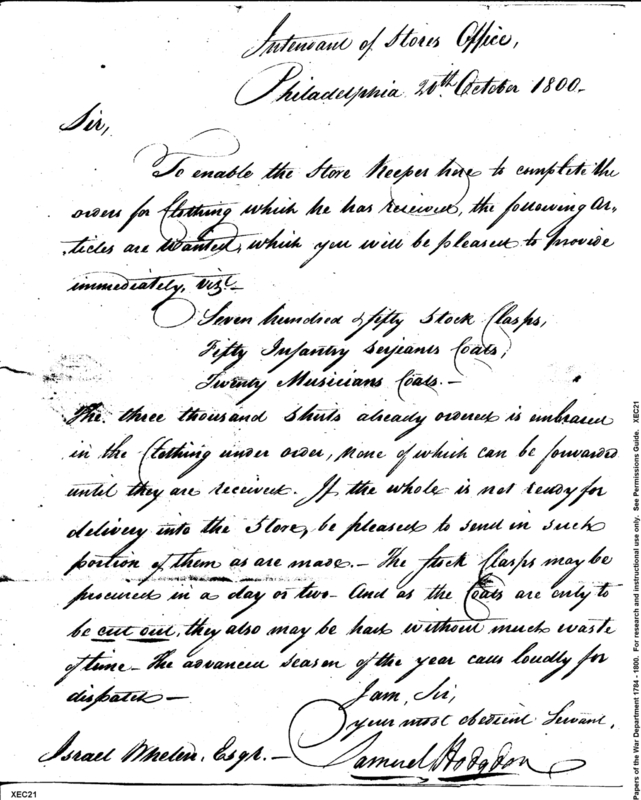 Intendant of Stores Office,
Philadelphia 20th October 1800-
Sir,
To enable the Store Keeper here to complete the
orders for Clothing which he has received, the following Ar-
-ticles are wanted, which you will be pleased to provide
immediately, vizt-
Seven hundred & fifty Stock Clasps,
Fifty Infantry Serjeants Coats,
Twenty Musicians Coats.-
The three thousand Shirts already ordered is embraced
in the Clothing under order, none of which can be forwarded
until they are received. If the whole is not ready for
delivery into the Store, be pleased to send in such
portion of them as are made.- The stock Clasps may be
procured in a day or two- And as the Coats are only to
be cut out, they also may be had without much waste
of time- The advanced season of the year calls loudly for
dispatch-
I am, Sir,
your most obedient Servant,
Samuel Hodgdon
Israel Whelen, Esqr.-
XEC21
Papers of the War Department 1784 - 1800. For research and instructional use only. See Permissions Guide. XEC21